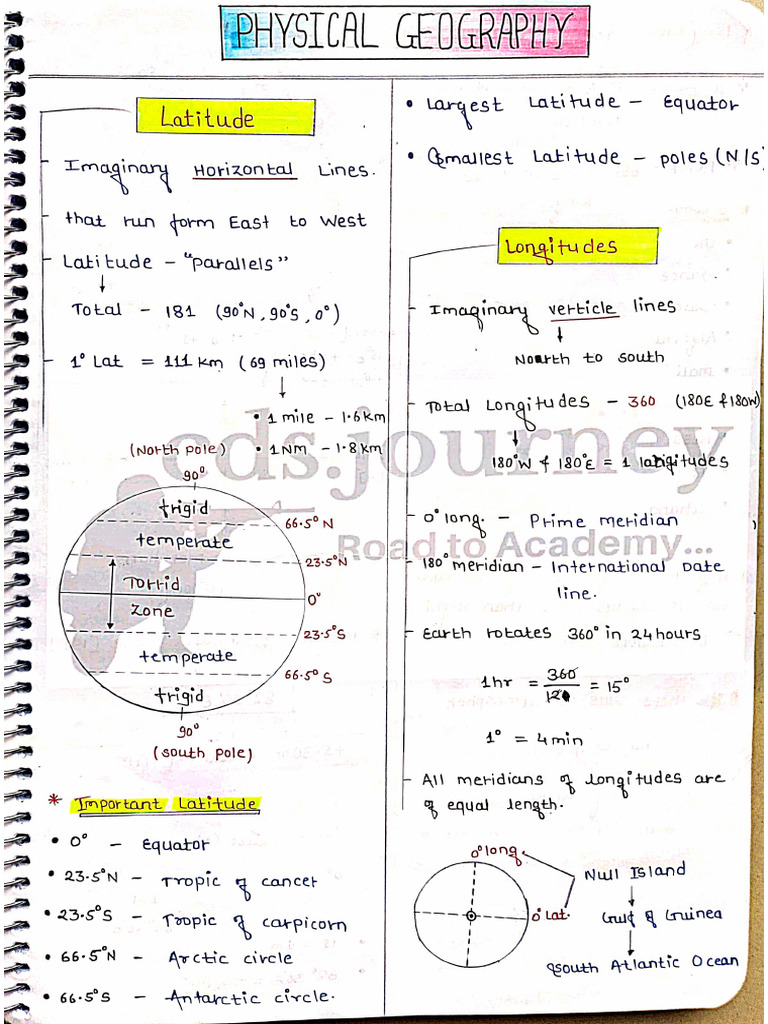 PHYSICAL GEOGRAPHY
Latitude
Imaginary Horizontal Lines.
that run form East to West
Latitude - "parallels"
Total - 181 (90°N, 90°S, 0°)
1° Lat = 111 km (69 miles)
• 1 mile - 1.6km
• 1 NM - 1.8km
(North pole)
90°
frigid
66.5° N
temperate
23.5° N
Torrid
0°
zone
23.5° S
temperate
66.5° S
frigid
90°
(south pole)
* Important Latitude
• 0° - Equator
• 23.5°N - Tropic of cancer
• 23.5°S - Tropic of carpicorn
• 66.5°N - Arctic circle
• 66.5°S - Antarctic circle.
• Largest Latitude - Equator
• Smallest Latitude - poles (N/S)
Longitudes
Imaginary verticle lines
North to south
Total Longitudes - 360 (180E & 180W)
180°W & 180°E = 1 longitudes
0° long. - Prime meridian
180° meridian - International Date
line.
Earth rotates 360° in 24 hours
1hr = 360/ = 15°
1° = 4 min
All meridians of longitudes are
of equal length.
0° long.
0° Lat.
Null Island
Gulf of Guinea
South Atlantic Ocean
cds.journey
Road to Academy...